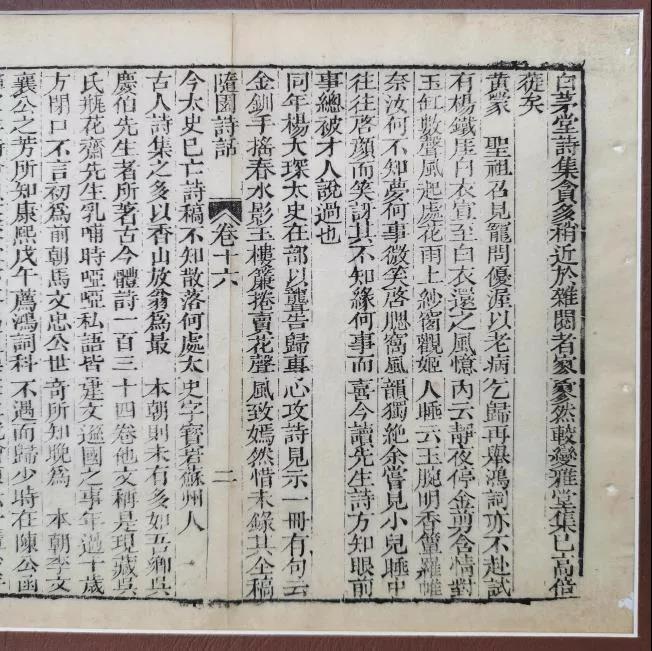 白茅堂詩集貪多稍近於雜閱者寥寥然較變雅堂集已高倍
蓰矣
黃蒙　聖祖召見寵問優渥以老病乞歸再舉鴻詞亦不赴試
有楊鐵厓白衣宣至白衣還之風憶內云靜夜停金剪含情對
玉缸數聲風起處花雨上紗窗觀姬人睡云玉腕明香簟羅帷
奈汝何不知夢何事微笑啓腮窩風韻獨絕余嘗見小兒睡中
往往啓顏而笑訝其不知緣何事而喜今讀先生詩方知眼前
事總被才人說過也
同年楊大琛太史在部以聾告歸專心攻詩見示一冊有句云
金釧手搖春水影玉樓簾捲賣花聲風致嫣然惜未錄其全稿
隨園詩話　卷十六　二
今太史已亡詩稿不知散落何處太史字寶岩蘇州人
古人詩集之多以香山放翁爲最　本朝則未有多如吾鄉吳
慶伯先生者所著古今體詩一百三十四卷他文稱是現藏吳
氏瓶花齋先生乳哺時啞啞私語皆建文遜國之事年過十歲
方閉口不言初爲前朝馬文忠公世奇所知晚爲　本朝李文
襄公之芳所知康熙戊午薦鴻詞科不遇而歸少時在陳公函